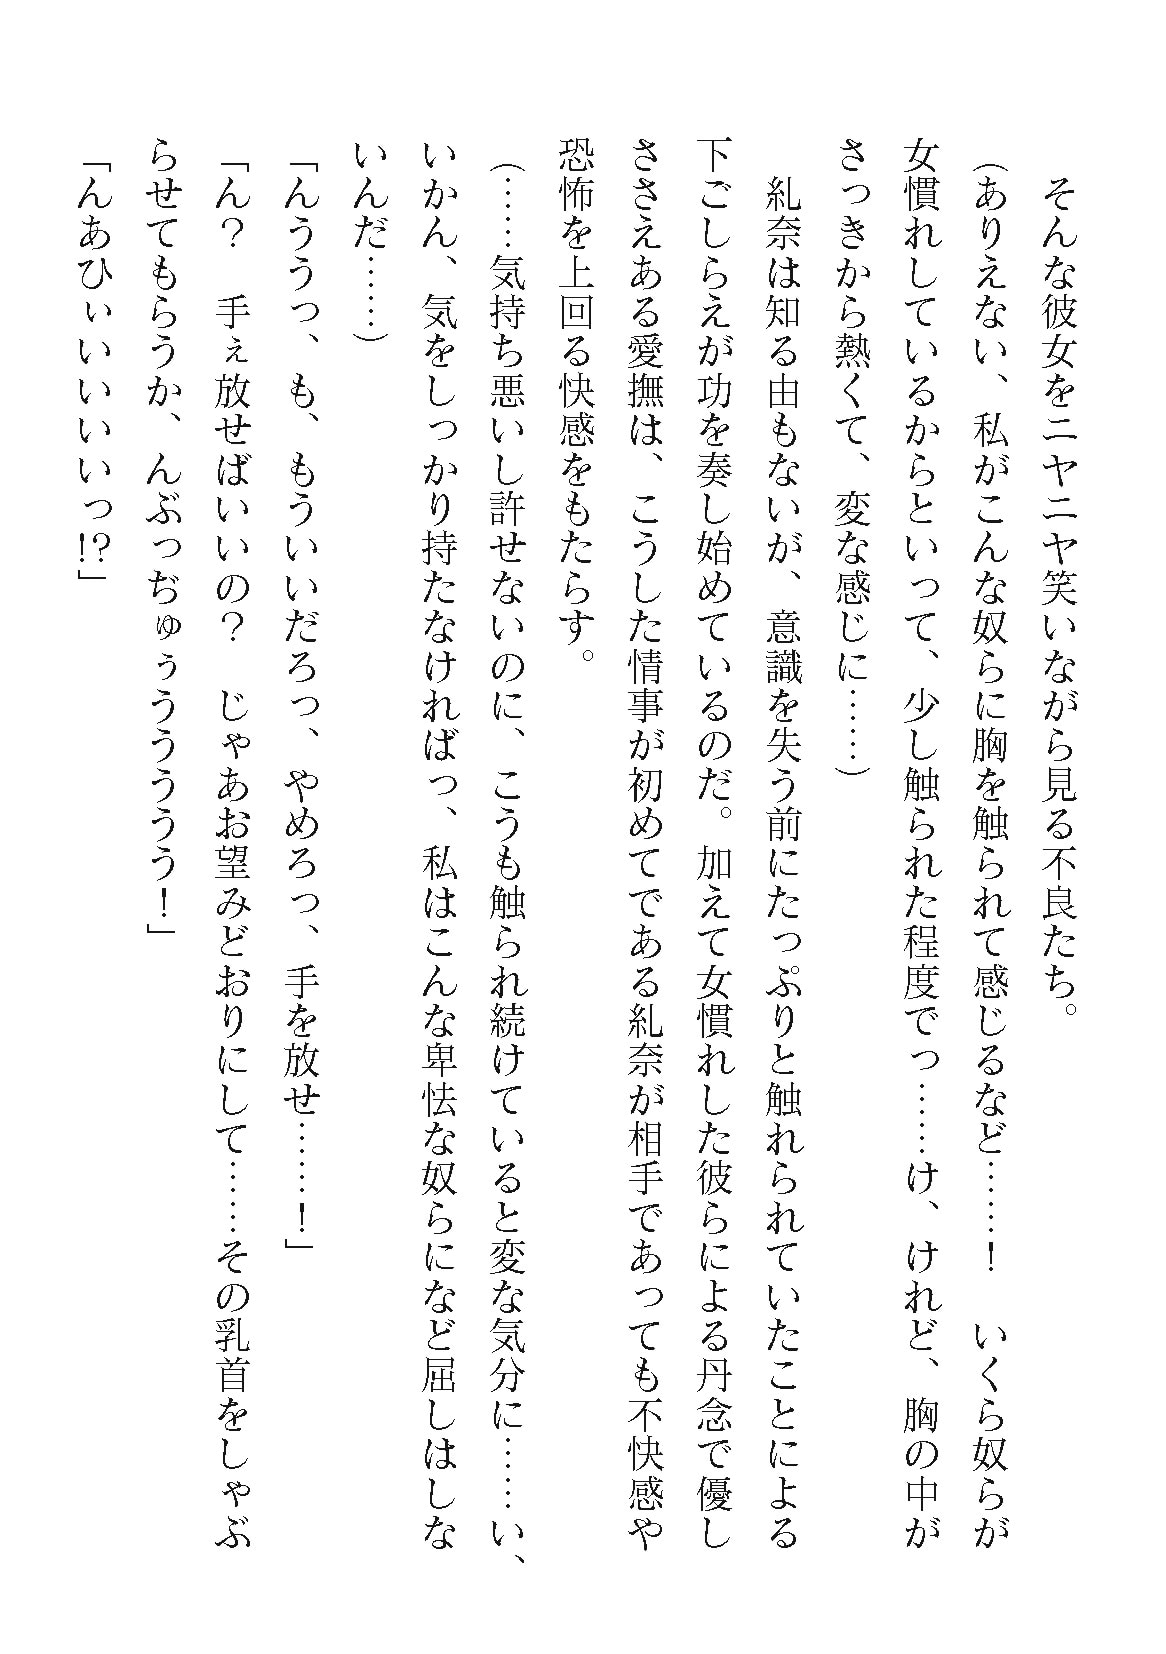 そんな彼女をニヤニヤ笑いながら見る不良たち。
（ありえない、私がこんな奴らに胸を触られて感じるなど……！　いくら奴らが
女慣れしているからといって、少し触られた程度でっ……け、けれど、胸の中が
さっきから熱くて、変な感じに……）
　糺奈は知る由もないが、意識を失う前にたっぷりと触れられていたことによる
下ごしらえが功を奏し始めているのだ。加えて女慣れした彼らによる丹念で優し
ささえある愛撫は、こうした情事が初めてである糺奈が相手であっても不快感や
恐怖を上回る快感をもたらす。
（……気持ち悪いし許せないのに、こうも触られ続けていると変な気分に……い、
いかん、気をしっかり持たなければっ、私はこんな卑怯な奴らになど屈しはしな
いんだ……）
「んううっ、も、もういいだろっ、やめろっ、手を放せ……！」
「ん？　手ぇ放せばいいの？　じゃあお望みどおりにして……その乳首をしゃぶ
らせてもらうか、んぶっぢゅぅうううううう！」
「んあひぃいいいいっ!?」